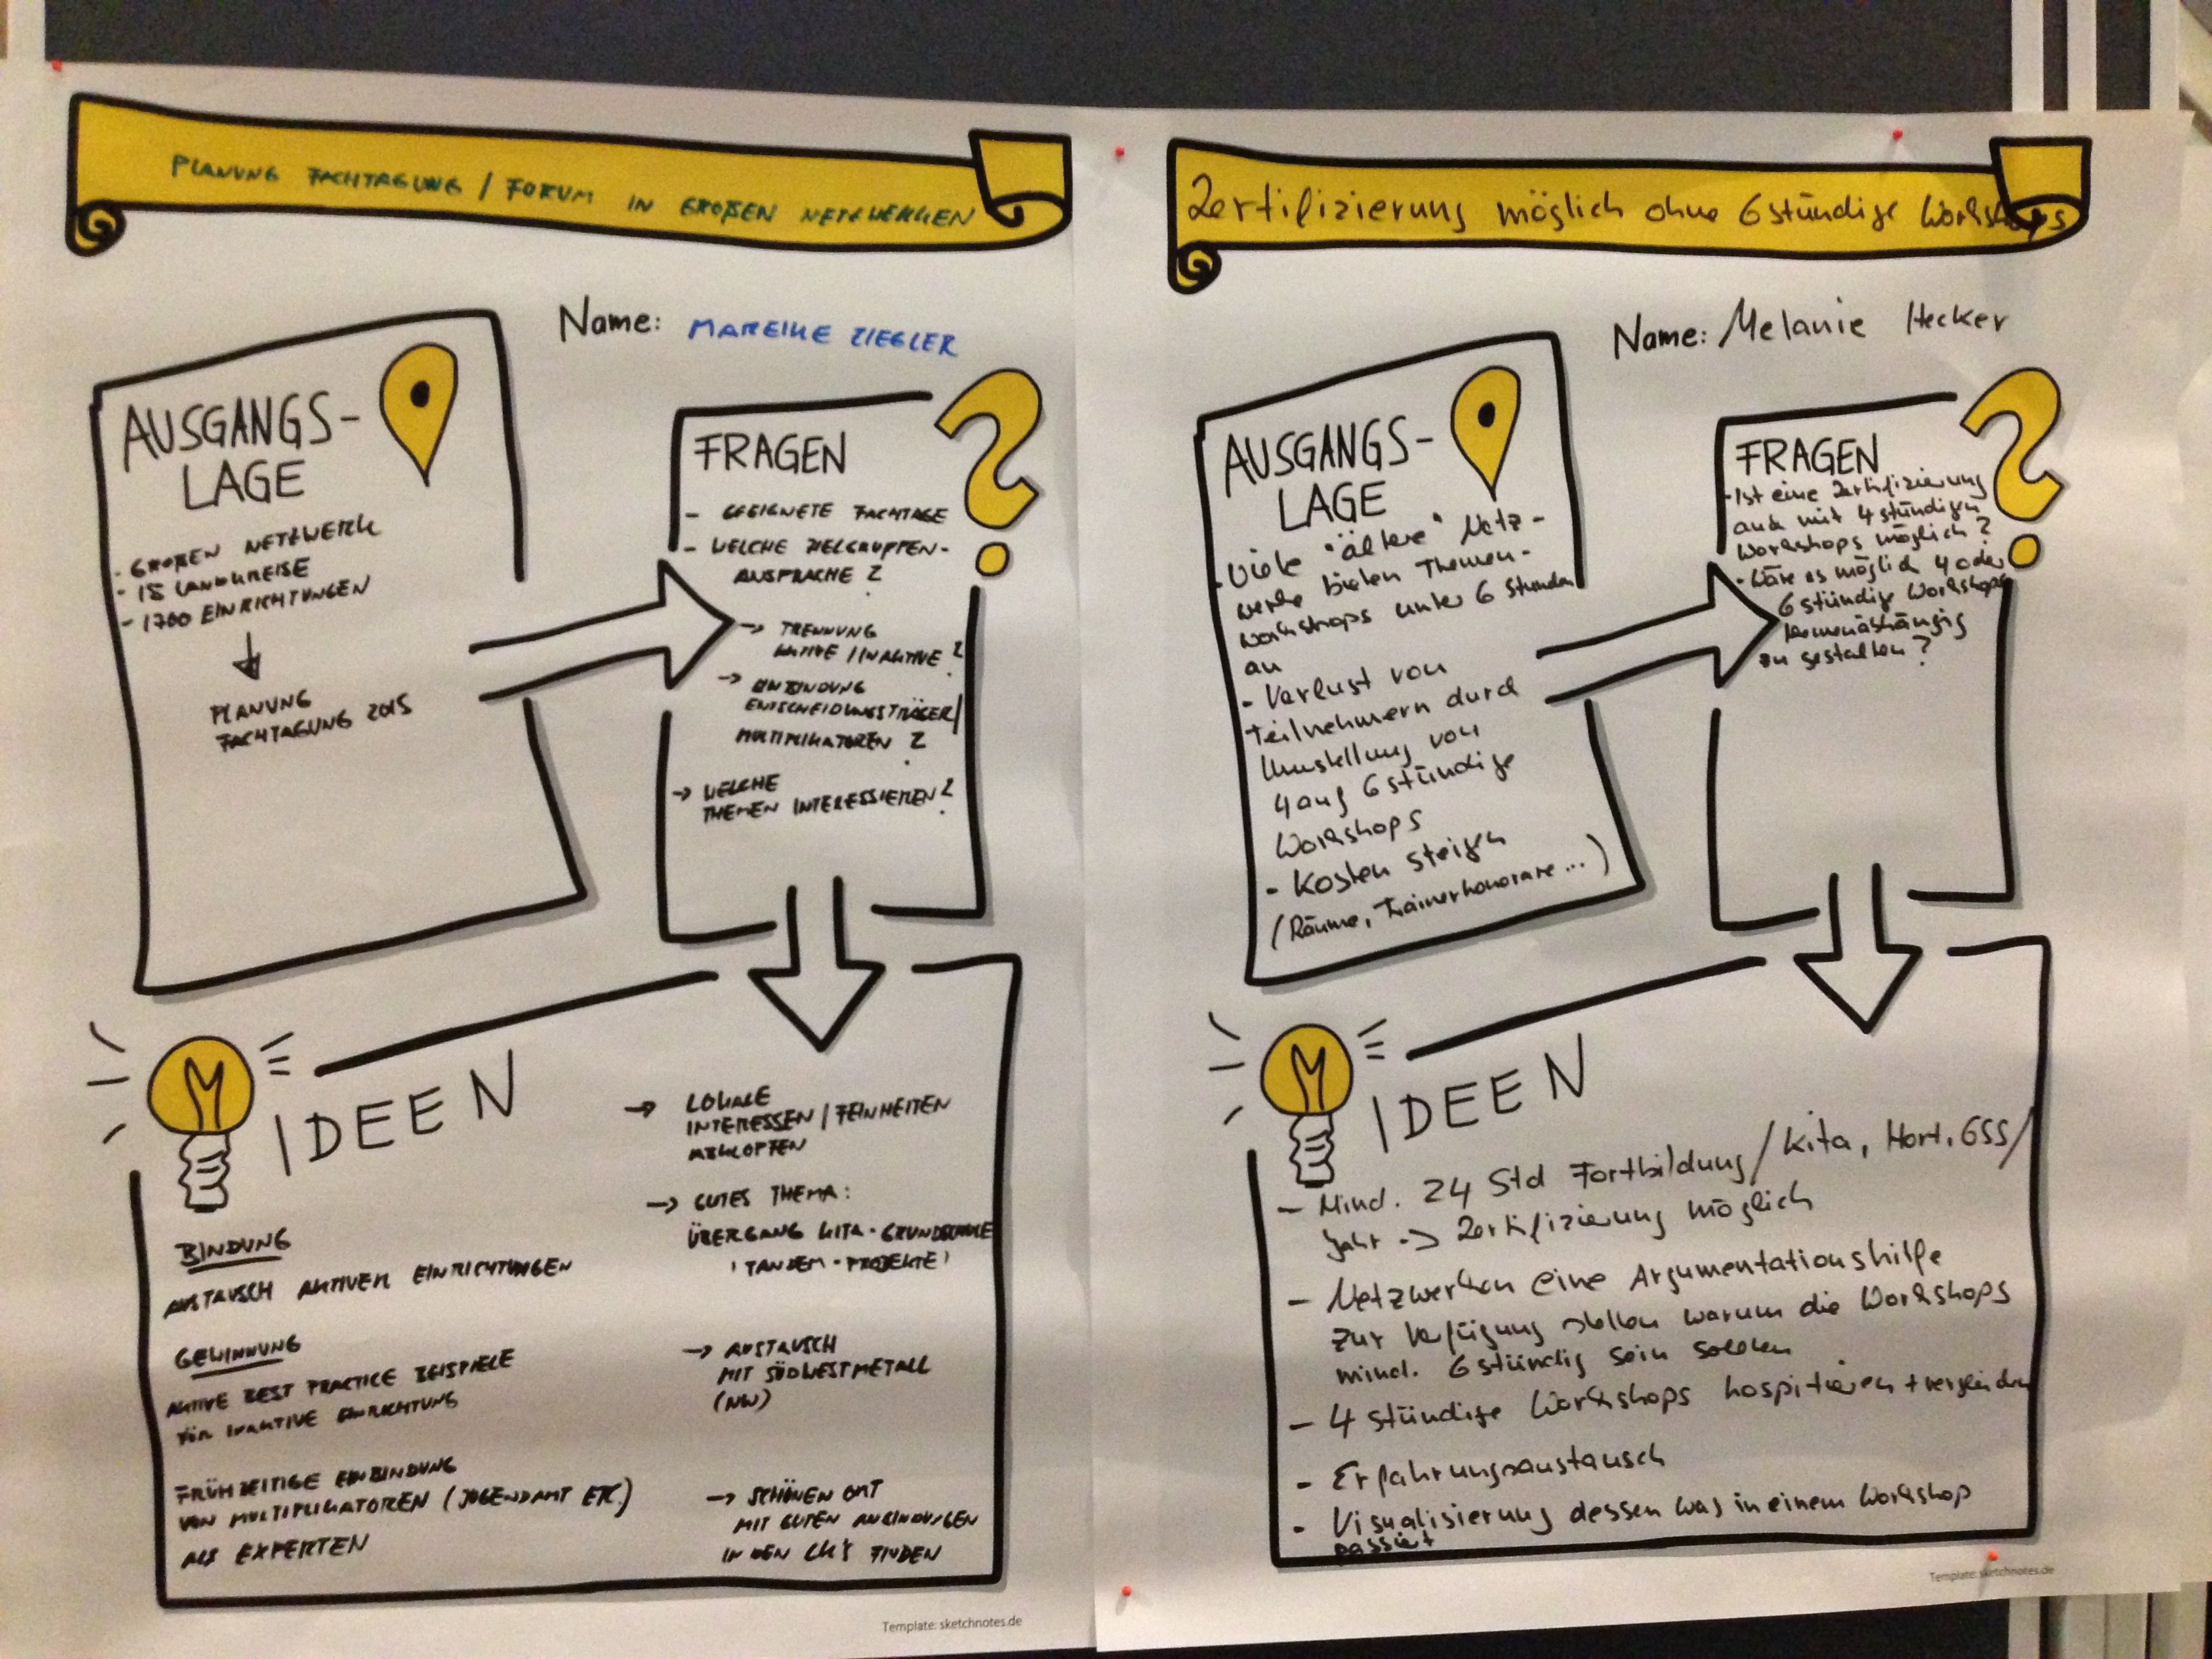 PLANUNG FACHTAGUNG / FORUM IN GROßEN NETZWERKEN
Name: MAREIKE ZIEGLER
AUSGANGS-
LAGE
- GROßEN NETZWERK
- 15 LANDKREISE
- 1700 EINRICHTUNGEN
PLANUNG
FACHTAGUNG 2015
FRAGEN
- GEEIGNETE FACHTAGE
- WELCHE ZIELGRUPPEN-
ANSPRACHE ?
→ TRENNUNG
AKTIVE / INAKTIVE ?
→ EINBINDUNG
ENTSCHEIDUNGSTRÄGER/
MULTIPLIKATOREN ?
→ WELCHE
THEMEN INTERESSIEREN ?
IDEEN
BINDUNG
AUSTAUSCH AKTIVER EINRICHTUNGEN
GEWINNUNG
AKTIVE BEST PRACTICE BEISPIELE
FÜR INAKTIVE EINRICHTUNG
FRÜHZEITIGE EINBINDUNG
VON MULTIPLIKATOREN (JUGENDAMT ETC.)
ALS EXPERTEN
→ LOKALE
INTERESSEN / FEINHEITEN
ABKLOPFEN
→ GUTES THEMA:
ÜBERGANG KITA - GRUNDSCHULE
'TANDEM - PROJEKTE'
→ AUSTAUSCH
MIT SÜDWESTMETALL
(NW)
→ SCHÖNEN ORT
MIT GUTEN ANBINDUNGEN
IN DEN LK'S FINDEN
Template: sketchnotes.de
Zertifizierung möglich ohne 6stündige Workshops
Name: Melanie Hecker
AUSGANGS-
LAGE
- Viele "ältere" Netz-
werke bieten Themen-
workshops unter 6 Stunden
an
- Verlust von
Teilnehmern durch
Umstellung von
4 auf 6stündige
Workshops
- Kosten steigen
(Räume, Trainerhonorare...)
FRAGEN
- Ist eine Zertifizierung
auch mit 4stündigen
Workshops möglich?
- Wäre es möglich 4 oder
6stündige Workshops
themenabhängig
zu gestalten?
IDEEN
- Mind. 24 Std Fortbildung / Kita, Hort, GSS/
Jahr -> Zertifizierung möglich
- Netzwerken eine Argumentationshilfe
zur Verfügung stellen warum die Workshops
mind. 6stündig sein sollen
- 4stündige Workshops hospitieren + vergleichen
- Erfahrungsaustausch
- Visualisierung dessen was in einem Workshop
passiert
Template: sketchnotes.de